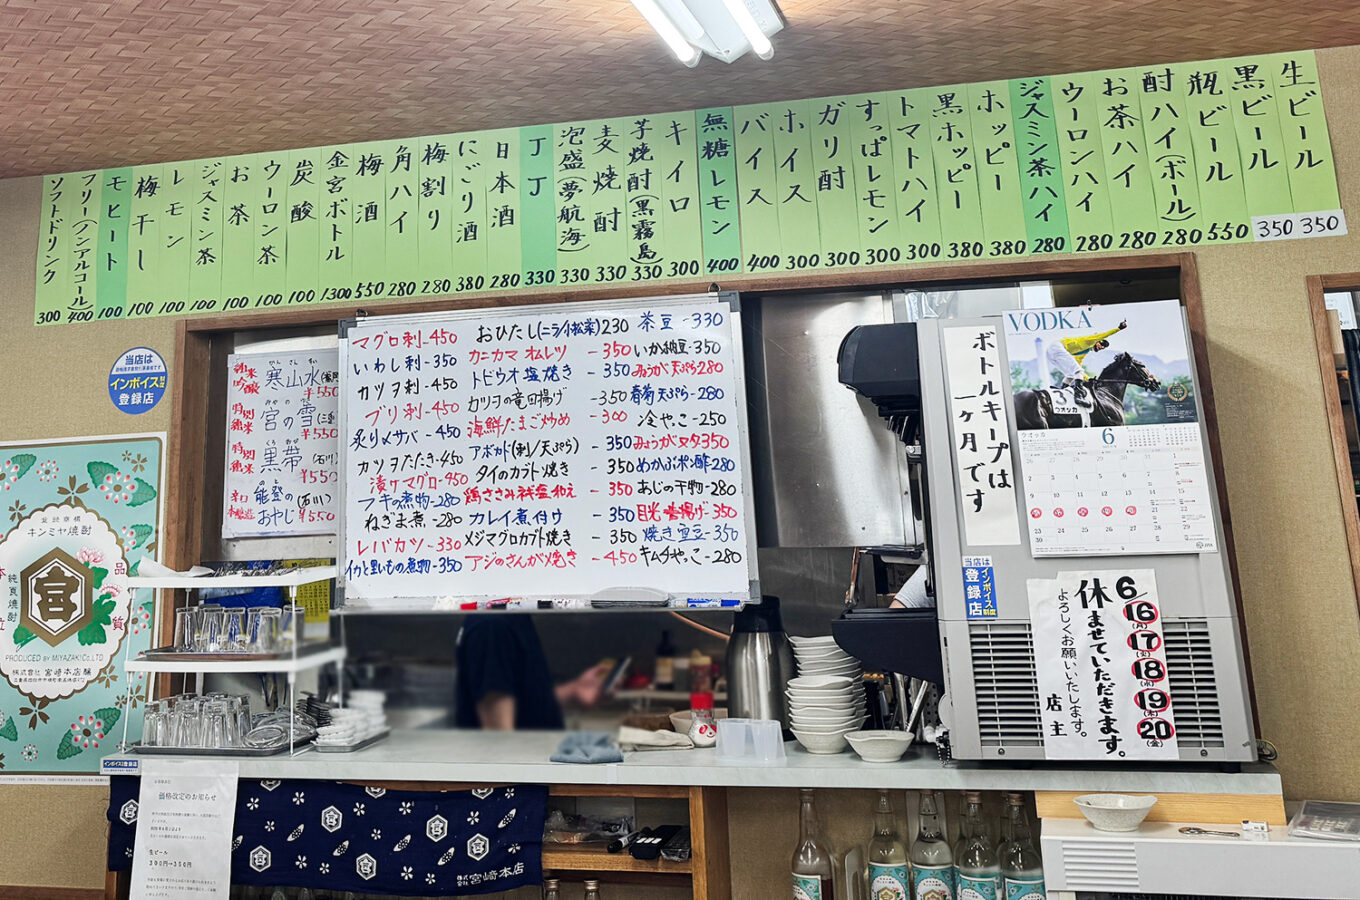 生ビール 350
黒ビール 350
瓶ビール 550
酎ハイ(ボール) 280
お茶ハイ 280
ウーロンハイ 280
ジャスミン茶ハイ 280
ホッピー 380
黒ホッピー 380
トマトハイ 300
すっぱレモン 300
ガリ酎 300
ホイス 300
バイス 400
無糖レモン 400
キイロ 300
芋焼酎(黒霧島) 330
麦焼酎 330
泡盛(夢航海) 330
JJ 330
日本酒 280
にごり酒 380
梅割り 280
角ハイ 280
梅酒 550
金宮ボトル 1300
炭酸 100
ウーロン茶 100
お茶 100
ジャスミン茶 100
レモン 100
梅干し 100
モヒート 100
フリー(ノンアルコール) 400
ソフトドリンク 300
当店は
インボイス制度
登録店
純米吟醸 寒山水
¥550
特別純米 宮の雪
¥550
特別純米 黒帯(石川)
¥550
辛口本醸造 能登のおやじ(石川)
¥550
マグロ刺-450
いわし刺-350
カツヲ刺-450
ブリ刺-450
炙り〆サバ-450
カツヲたたき-450
漬けマグロ-450
フキの煮物-280
ねぎま煮-280
レバカツ-330
イカと里いもの煮物-350
おひたし(ニラ/小松菜)230
カニカマオムレツ-350
トビウオ塩焼き-350
カツヲの竜田揚げ-350
海鮮たまご炒め-300
アボカド(刺/天ぷら)-350
タイのカブト焼き-350
鶏ささみ和え-350
カレイ煮付け-350
メジマグロカブト焼き-350
アジのさんが焼き-450
茶豆-330
いか納豆-350
みょうが天ぷら-280
春菊天ぷら-280
冷やっこ-250
みょうがヌタ350
めかぶポン酢-280
あじの干物-280
目光唐揚げ-350
焼き豆豆-350
キムチやっこ-280
ボトルキープは
一ヶ月です
VODKA
ウオッカ
6
当店は
インボイス制度
登録店
6/16(月)
17(火)
18(水)
19(木)
20(金)
休ませていただきます。
よろしくお願いいたします。
店主
キンミヤ焼酎
品質本位
純良焼酎
宮
PRODUCED BY MIYAZAKI Co.LTD
株式会社 宮﨑本店醸
価格改定のお知らせ
生ビール
300円→350円
株式会社 宮﨑本店